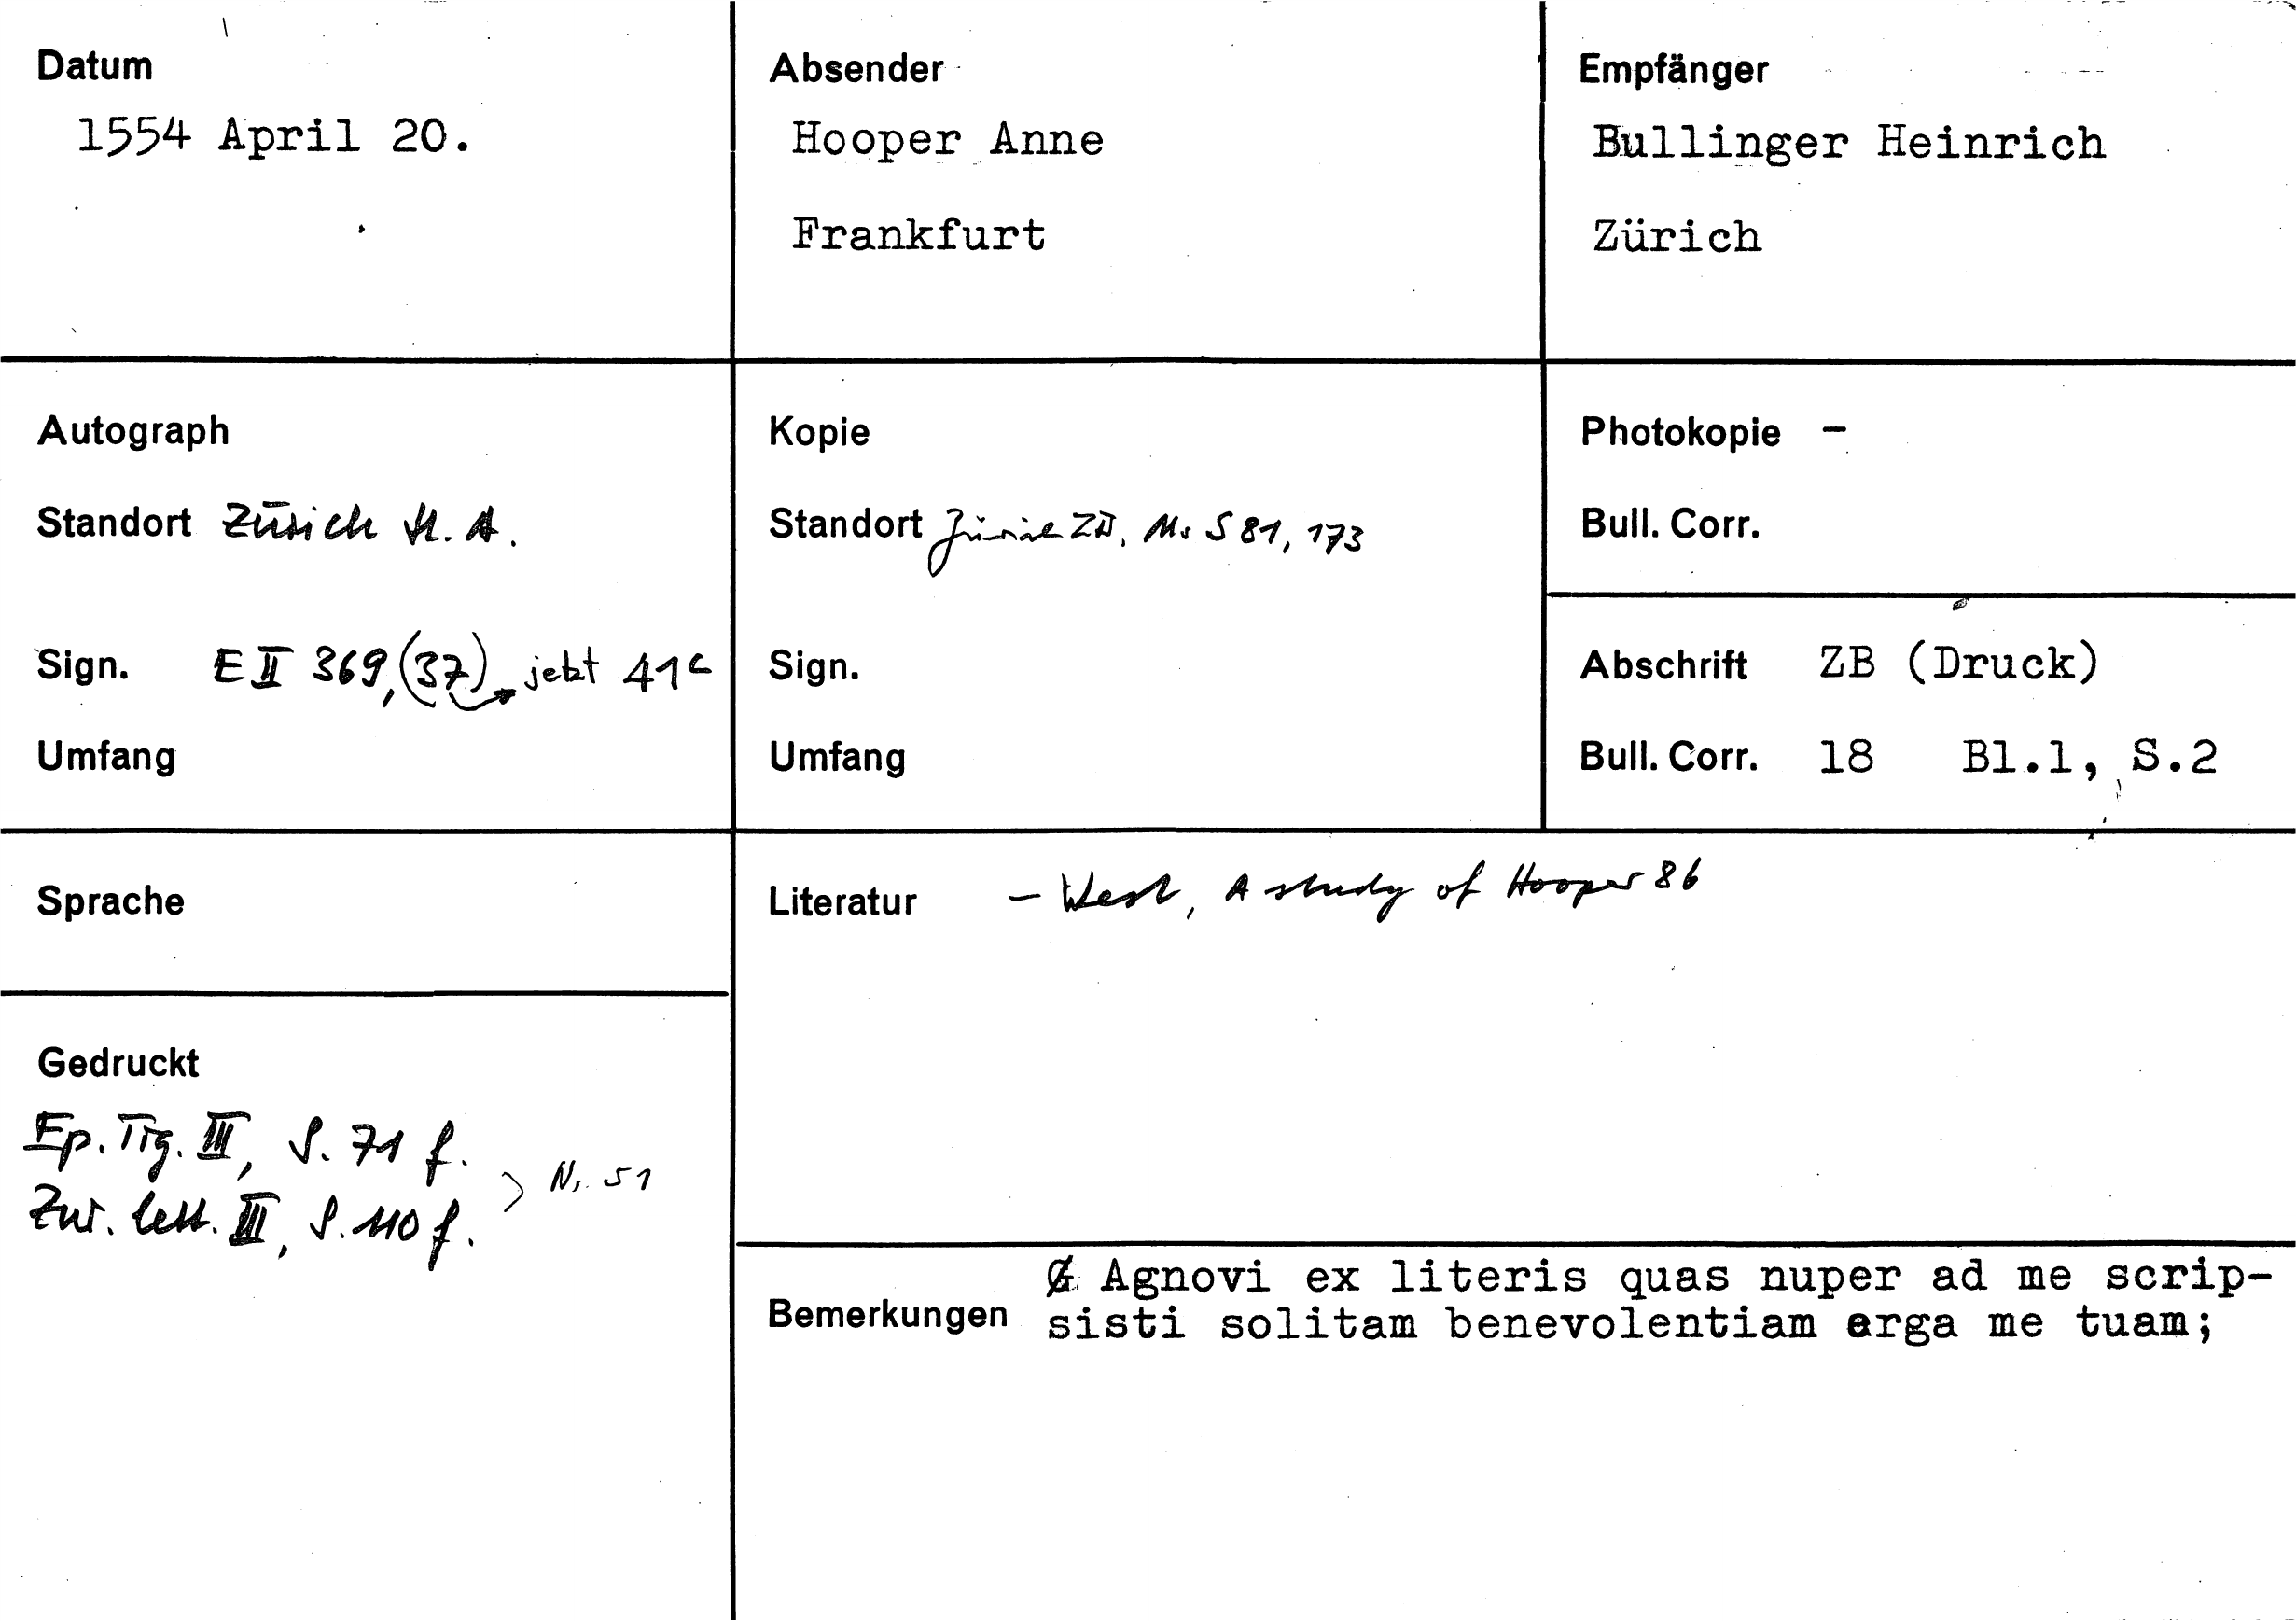 Datum
1554 April 20.
Absender
Hooper Anne
Frankfurt
Empfänger
Bullinger Heinrich
Zürich
Autograph
Standort Zürich St. A.
Sign. E II 369, (37) jetzt 41c
Umfang
Kopie
Standort Zürich ZB, Ms S 81, 173
Sign.
Umfang
Photokopie -
Bull. Corr.
Abschrift ZB (Druck)
Bull. Corr. 18 Bl.1, S.2
Sprache
Gedruckt
Ep. Tig. III, S. 71 f.
Zur. lett. III, S. 110 f.
> Nr. 51
Literatur - West, A study of Hooper 86
Bemerkungen
Agnovi ex literis quas nuper ad me scrip-
sisti solitam benevolentiam erga me tuam;